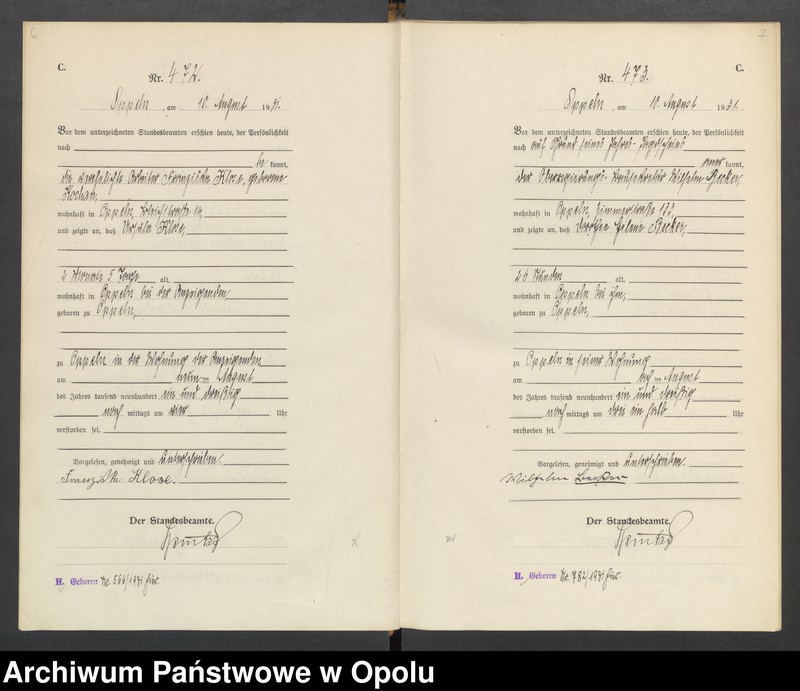 C.
Nr. 472.
Oppeln, am 10. August 1931.
Vor dem unterzeichneten Standesbeamten erschien heute, der Persönlichkeit
nach
be kannt,
die verehelichte Arbeiter Franziska Klose, geborene
Kochan,
wohnhaft in Oppeln,
und zeigte an, daß Ursula Klose,
2 Monate 5 Tage alt,
wohnhaft in Oppeln bei der Anzeigenden,
geboren zu Oppeln,
zu Oppeln in der Wohnung der Anzeigenden
am neun ten August
des Jahres tausend neunhundert ein und dreißig
nach mittags um vier Uhr
verstorben sei.
Vorgelesen, genehmigt und unterschrieben.
Franziska Klose.
Der Standesbeamte.
H. Geboren Nr. 566/1931 hier.
C.
Nr. 473.
Oppeln, am 10. August 1931.
Vor dem unterzeichneten Standesbeamten erschien heute, der Persönlichkeit
nach auf Grund seines Jahres-Jagdscheins
aner kannt,
der Oberregierungs-Bausekretär Wilhelm Becker,
wohnhaft in Oppeln, Zimmerstraße
und zeigte an, daß Dorothea Helene Becker,
26 Stunden alt,
wohnhaft in Oppeln bei ihm,
geboren zu Oppeln,
zu Oppeln in seiner Wohnung
am ach ten August
des Jahres tausend neunhundert ein und dreißig
nach mittags um drei ein halb Uhr
verstorben sei.
Vorgelesen, genehmigt und unterschrieben.
Wilhelm Becker
Der Standesbeamte.
H. Geboren Nr. 782/1931 hier.
Archiwum Państwowe w Opolu